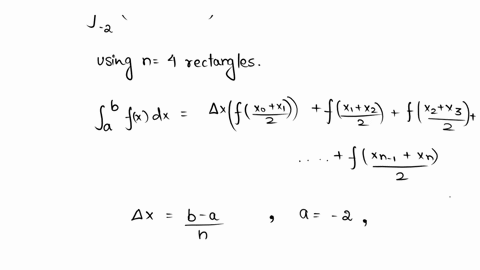 ∫-2
using n= 4 rectangles.
∫_a^b f(x) dx = Δx(f((x0+x1)/2)) + f((x1+x2)/2) + f((x2+x3)/2) +
.... + f((xn-1 + xn)/2)
Δx = (b-a)/n , a= -2 ,